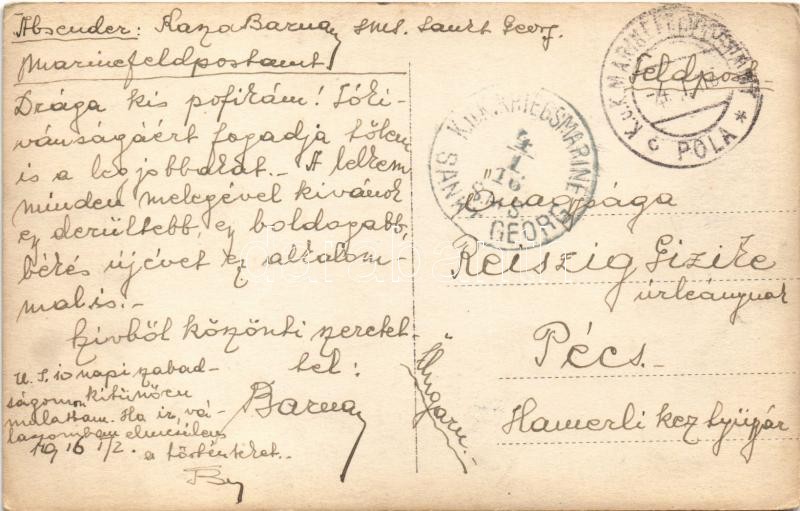 Absender: Kaza Barna SMS. Sankt Georg.
Marinefeldpostamt
Drága kis pofikám! Jóki-
vánságáért fogadja tőlem
is a legjobbakat.- A lelkem
minden melegével kivánok
egy derültebb, egy boldogabb,
békés újévet ez alkalom-
mal is.-
Szivből köszönti szeretet-
tel:
Barna
U. I. 10 napi szabad-
ságomon kitünően
mulattam. Ha ir, vá-
laszomban elmesélem
a történteket.-
1916 1/2.
K.u.K. MARINEFELDPOSTAMT
POLA
Feldpost.
K.u.K. KRIEGSMARINE
4/1
16
S.M.S.
SANKT GEORG
Őnagysága
Reiszig Gizike
úrleánynak
Pécs.
Hamerli keztyügyár
Ungarn.-